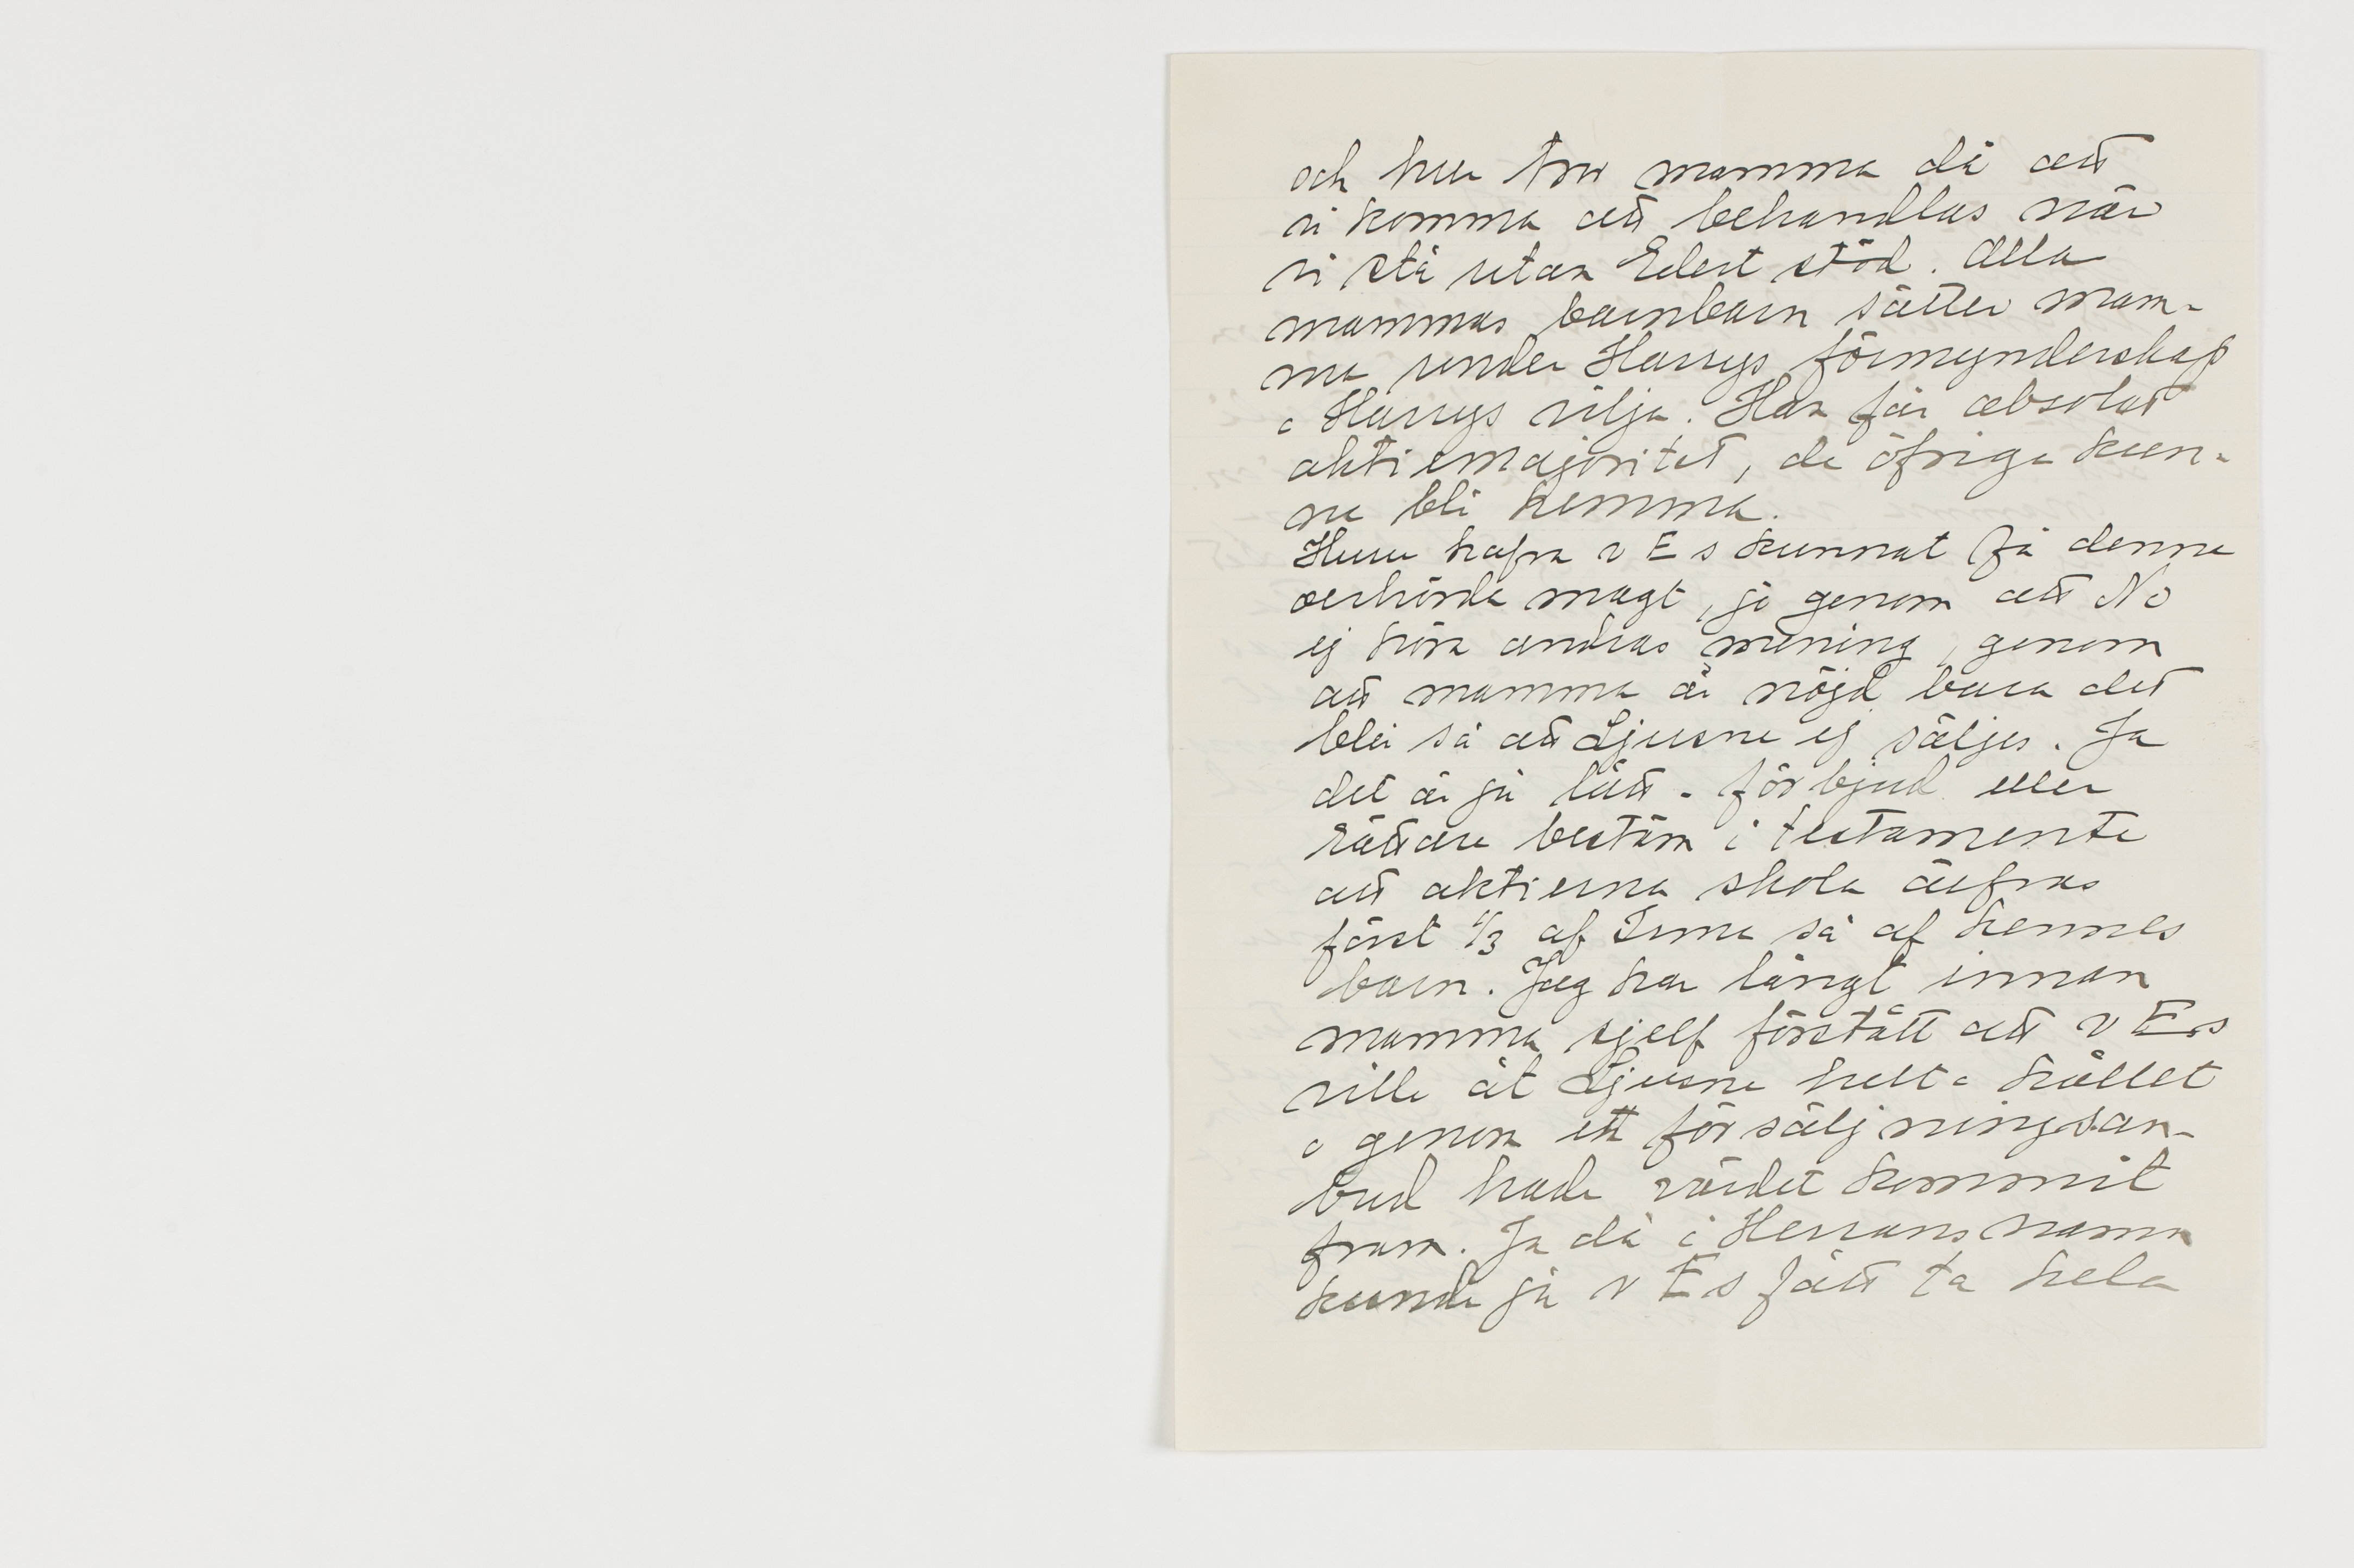 och huru tror mamma då att
vi komma att behandlas när
vi stå utan Edert stöd. Alla
mammas barnbarn sätter mam-
ma under Harrys förmynderskap
o Harrys vilja. Han får absolut
aktiemajoritet, de öfriga kun-
na bli hemma.
Huru hafva v E s kunnat få denna
oerhörda magt, jo genom att Ni
ej höra andras mening, genom
att mamma är nöjd bara det
blir så att Ljusne ej säljes. Ja
det är ju lätt - förbjud eller
rättare bestäm i testamente
att aktierna skola ärfvas
först 1/3 af Irma så af hennes
barn. Jag har långt innan
mamma sjelf förstått att v E.s
ville åt Ljusne helt o hållet
o genom ett försäljningsan-
bud hade värdet kommit
fram. Ja då i Herrans namn
kunde ju v E s fått ta hela